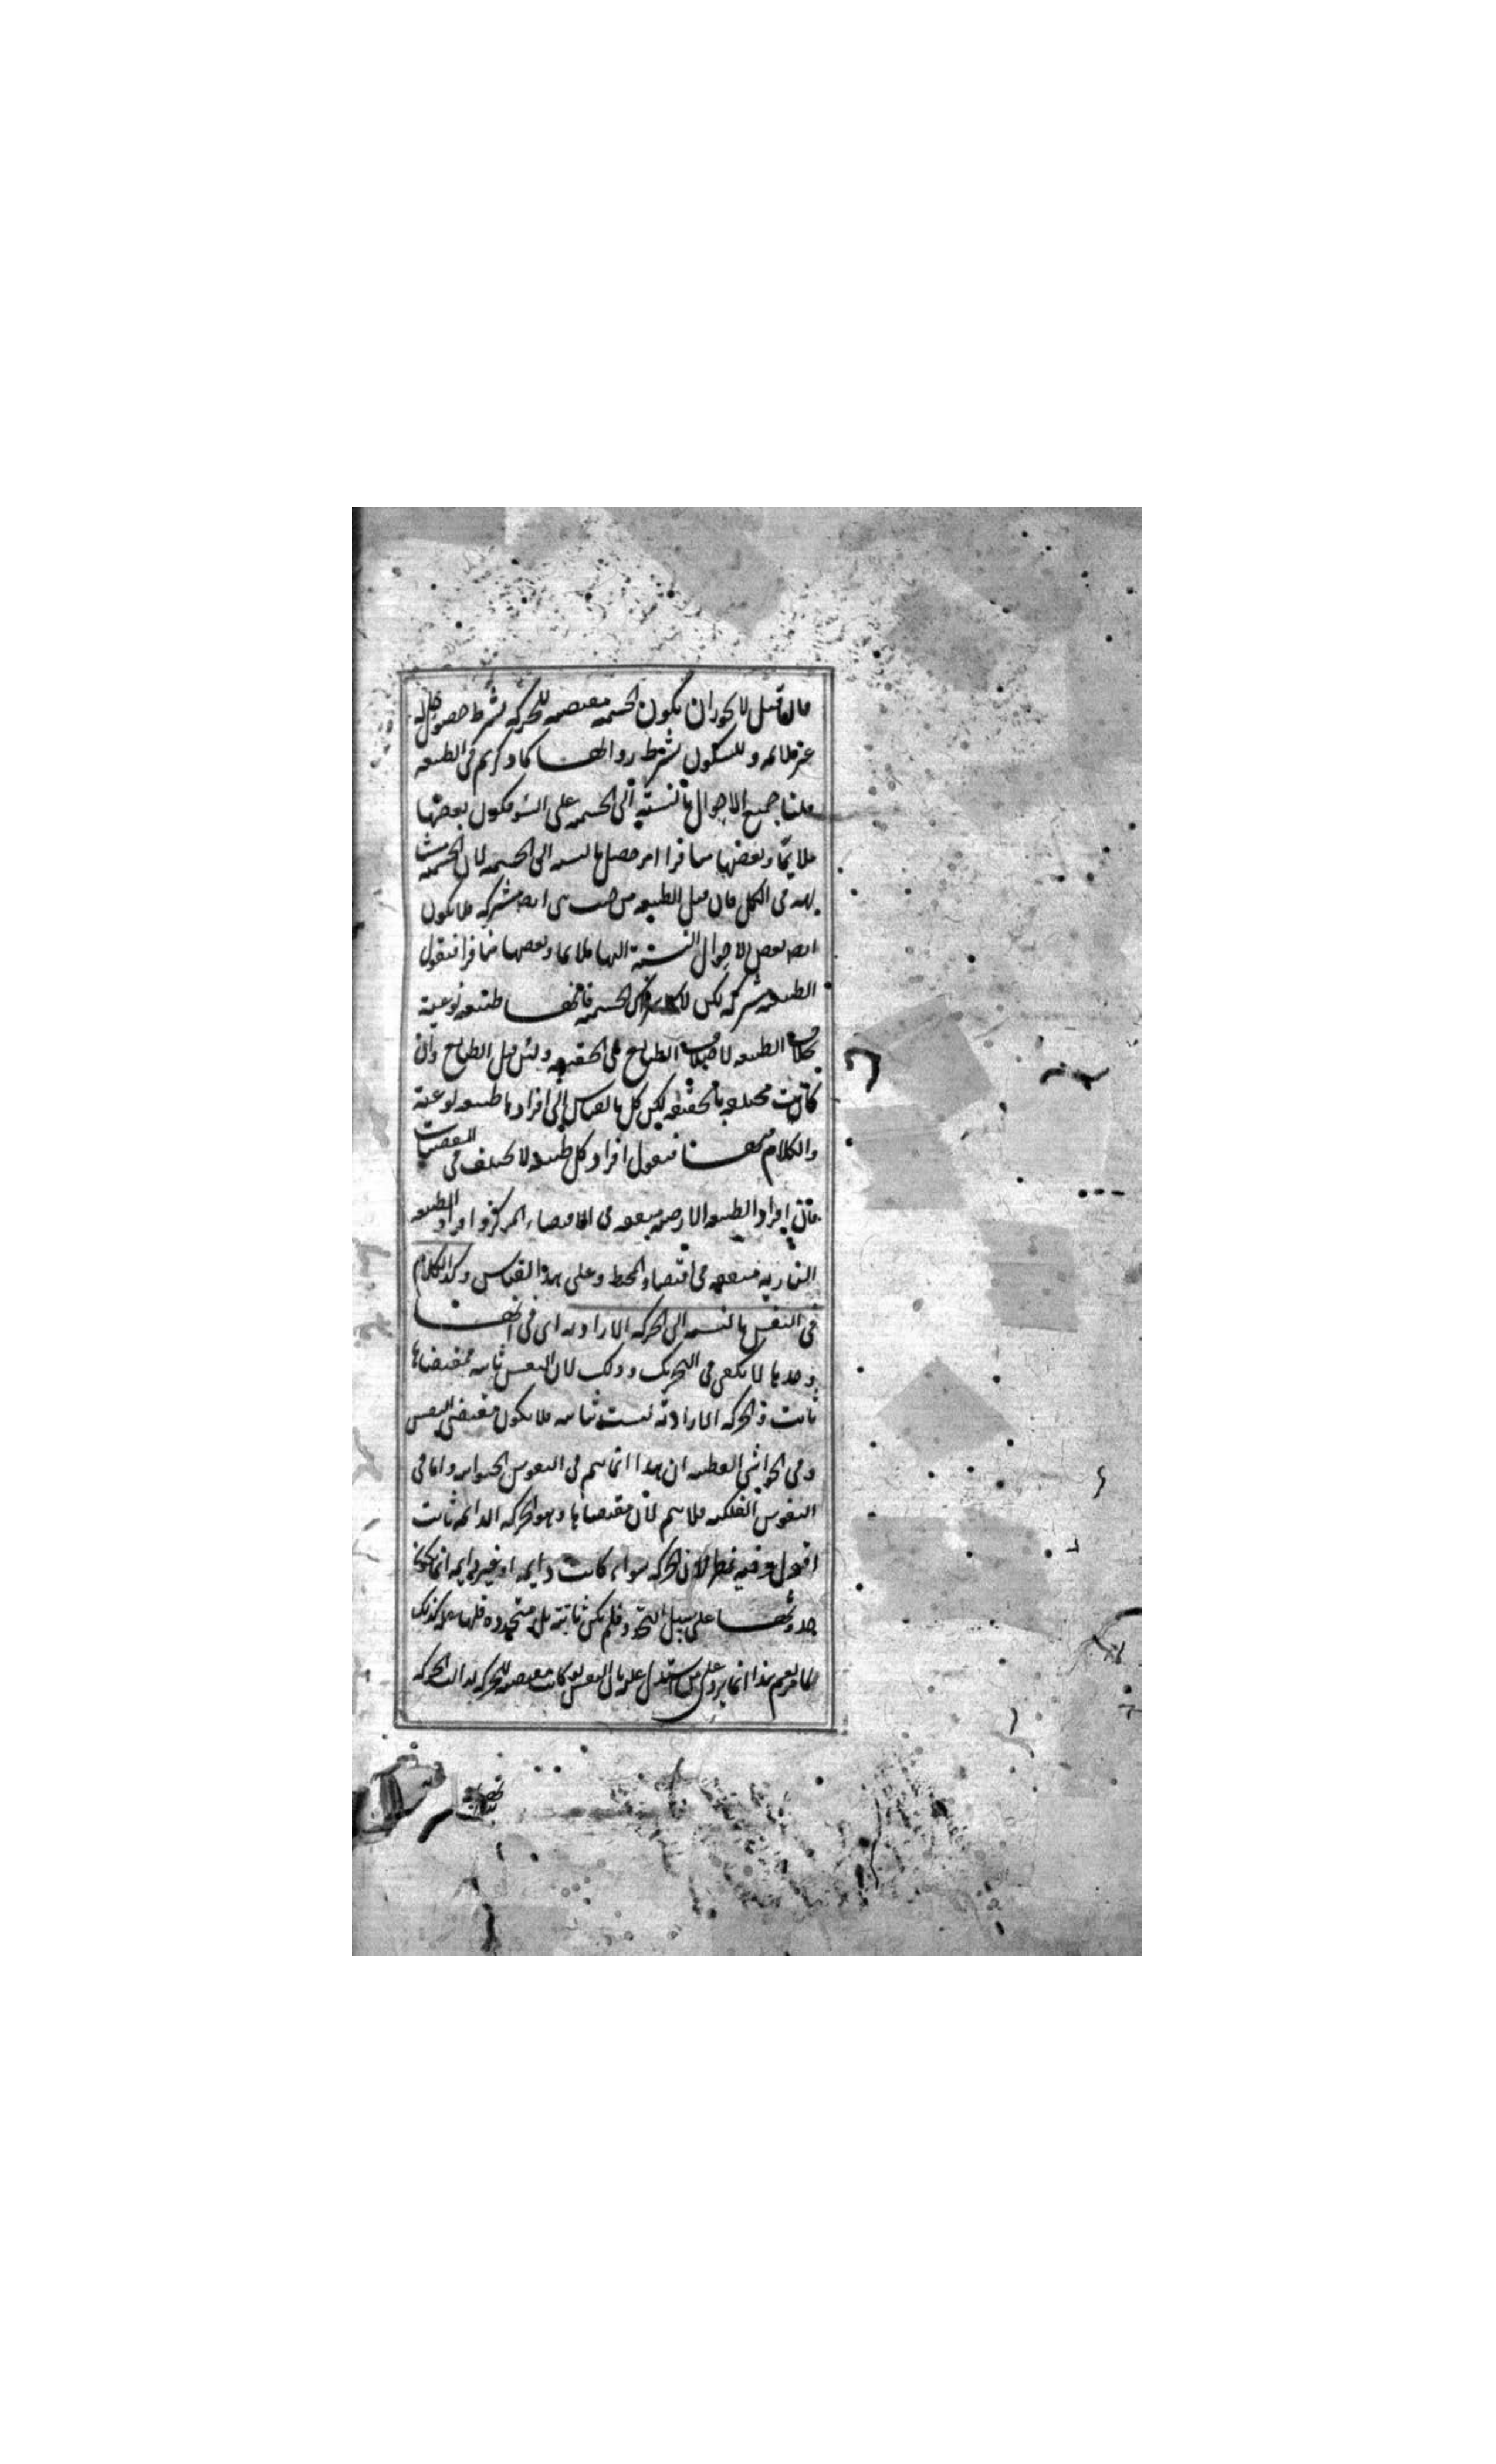 فان قيل لا يجوز ان يكون الجسمية مقتضية للحركة بشرط حصول حالة
غير ملائمة وللسكون بشرط زوالها كما ذكرتم في الطبيعة
قلنا جميع الاحوال بالنسبة الى الجسمية على السواء فكون بعضها
ملائما وبعضها منافرا امر حصل بالنسبة الى الجسمية لان الجسمية
في الكل فان قيل الطبيعة من حيث هي ايضا مشتركة فلا يكون
ايضا بعض الاحوال بالنسبة اليها ملائما وبعضها منافرا فنقول
الطبيعة مشتركة لكن لا الجسمية فانها طبيعة نوعية
بخلاف الطبيعة لاختلاف الطبايع في الحقيقة ولئن قيل الطبايع وان
كانت مختلفة بالحقيقة لكن كل بالقياس الى افرادها طبيعة نوعية
والكلام فيها فنقول افراد كل طبيعة لا تختلف في المقتضيات
فان افراد الطبيعة الارضية متفقة في اقتضاء المركز وافراد الطبيعة
النارية متفقة في اقتضاء المحيط وعلى هذا القياس وكذا الكلام
في النفس بالنسبة الى الحركة الارادية اي في انها
وحدها لا تكفي في التحريك وذلك لان النفس ثابتة فمقتضاها
ثابت والحركة الارادية ليست ثابتة فلا يكون مقتضى النفس
وفي الحواشي القطبية ان هذا انما يتم في النفوس الحيوانية واما في
النفوس الفلكية فلا يتم لان مقتضاها وهو الحركة الدائمة ثابت
اقول وفيه نظر لان الحركة سواء كانت دايمة او غير دايمة انما يكون
حدوثها على سبيل التجدد فلم يكن ثابتة بل متجددة فلها علة كذلك
لما مر نعم هذا انما يرد على من استدل عليه بان النفس لو كانت مقتضية للحركة لدامت الحركة